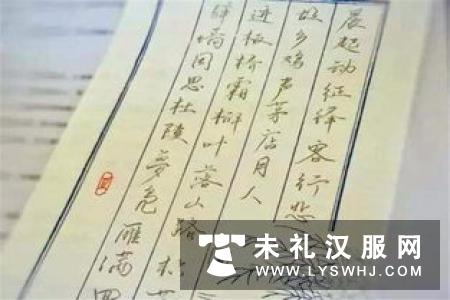 晨起动征铎客行悲
故乡鸡声茅店月人
迹板桥霜槲叶落山路枳
驿墙因思杜陵梦凫雁满回
未礼汉服网
WWW.LYSWHJ.COM